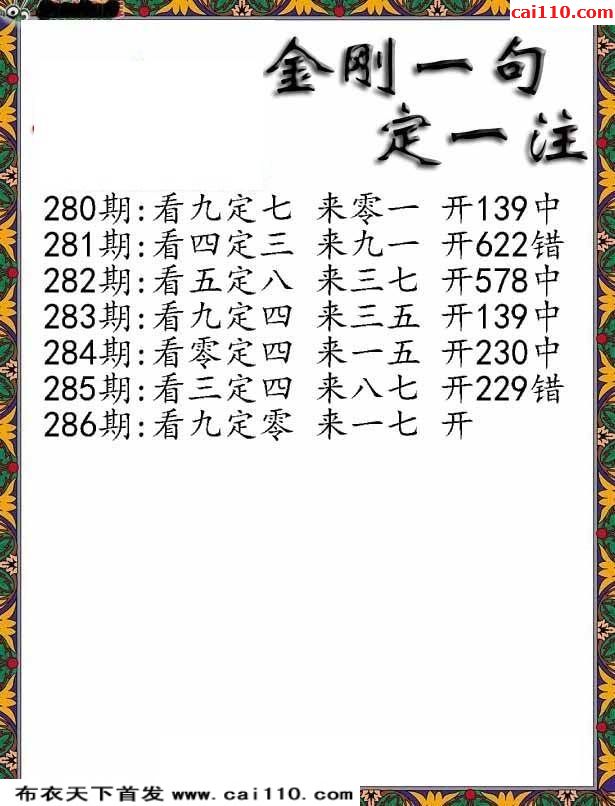 cai110.com
金刚一句
定一注
280期:看九定七 来零一 开139中
281期:看四定三 来九一 开622错
282期:看五定八 来三七 开578中
283期:看九定四 来三五 开139中
284期:看零定四 来一五 开230中
285期:看三定四 来八七 开229错
286期:看九定零 来一七 开
布衣天下首发 www.cai110.com